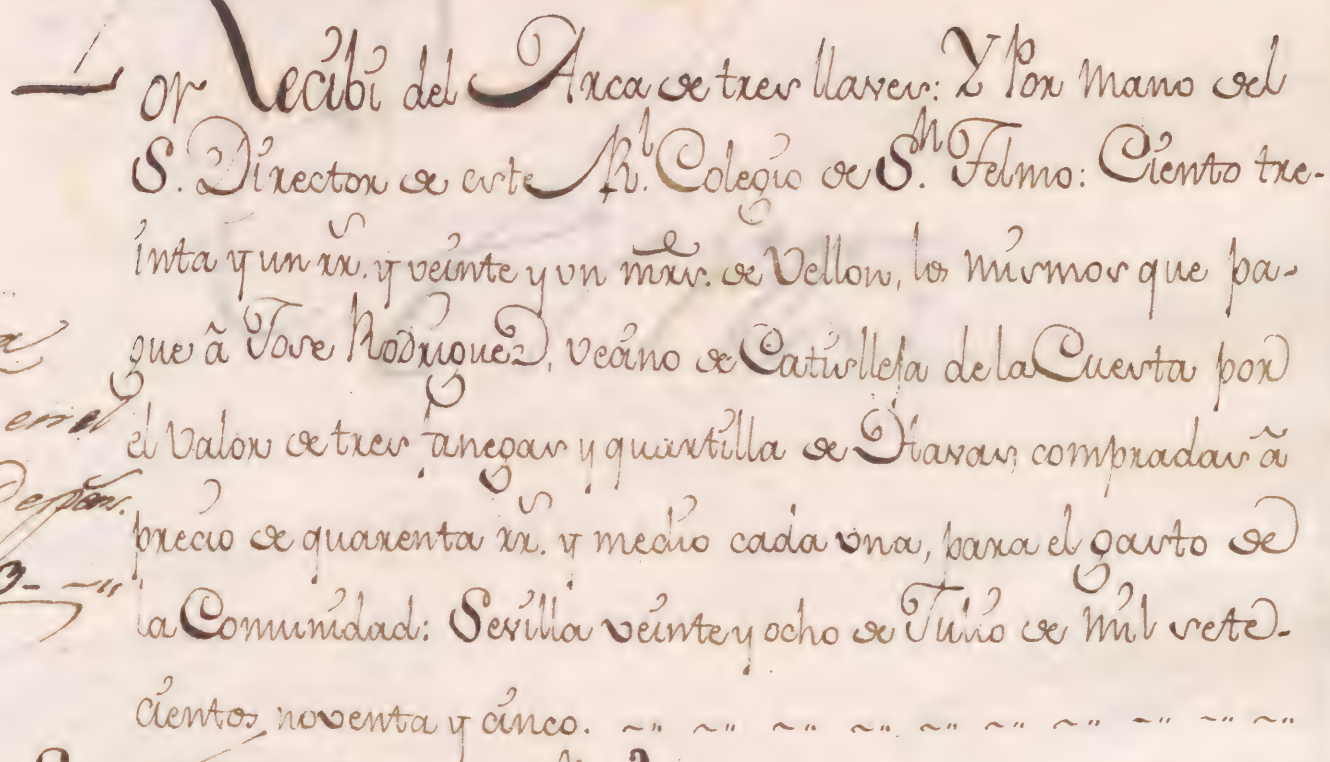 Por Recibi del Arca de tres llaves: Y Por mano del
S. Director de este Rl. Colegio de Sn. Telmo: Ciento tre-
inta y un rrs. y veinte y vn mrs. de Vellon, los mismos que pa-
gue â Jose Rodriguez, vecino de Castilleja de la Cuesta por
el Valor de tres fanegas y quartilla de Havas compradas â
en el
precio de quarenta rrs. y medio cada vna, para el gasto de
la Comunidad: Sevilla veinte y ocho de Julio de mil sete-
cientos noventa y cinco. ~" ~" ~" ~" ~" ~" ~" ~" ~"